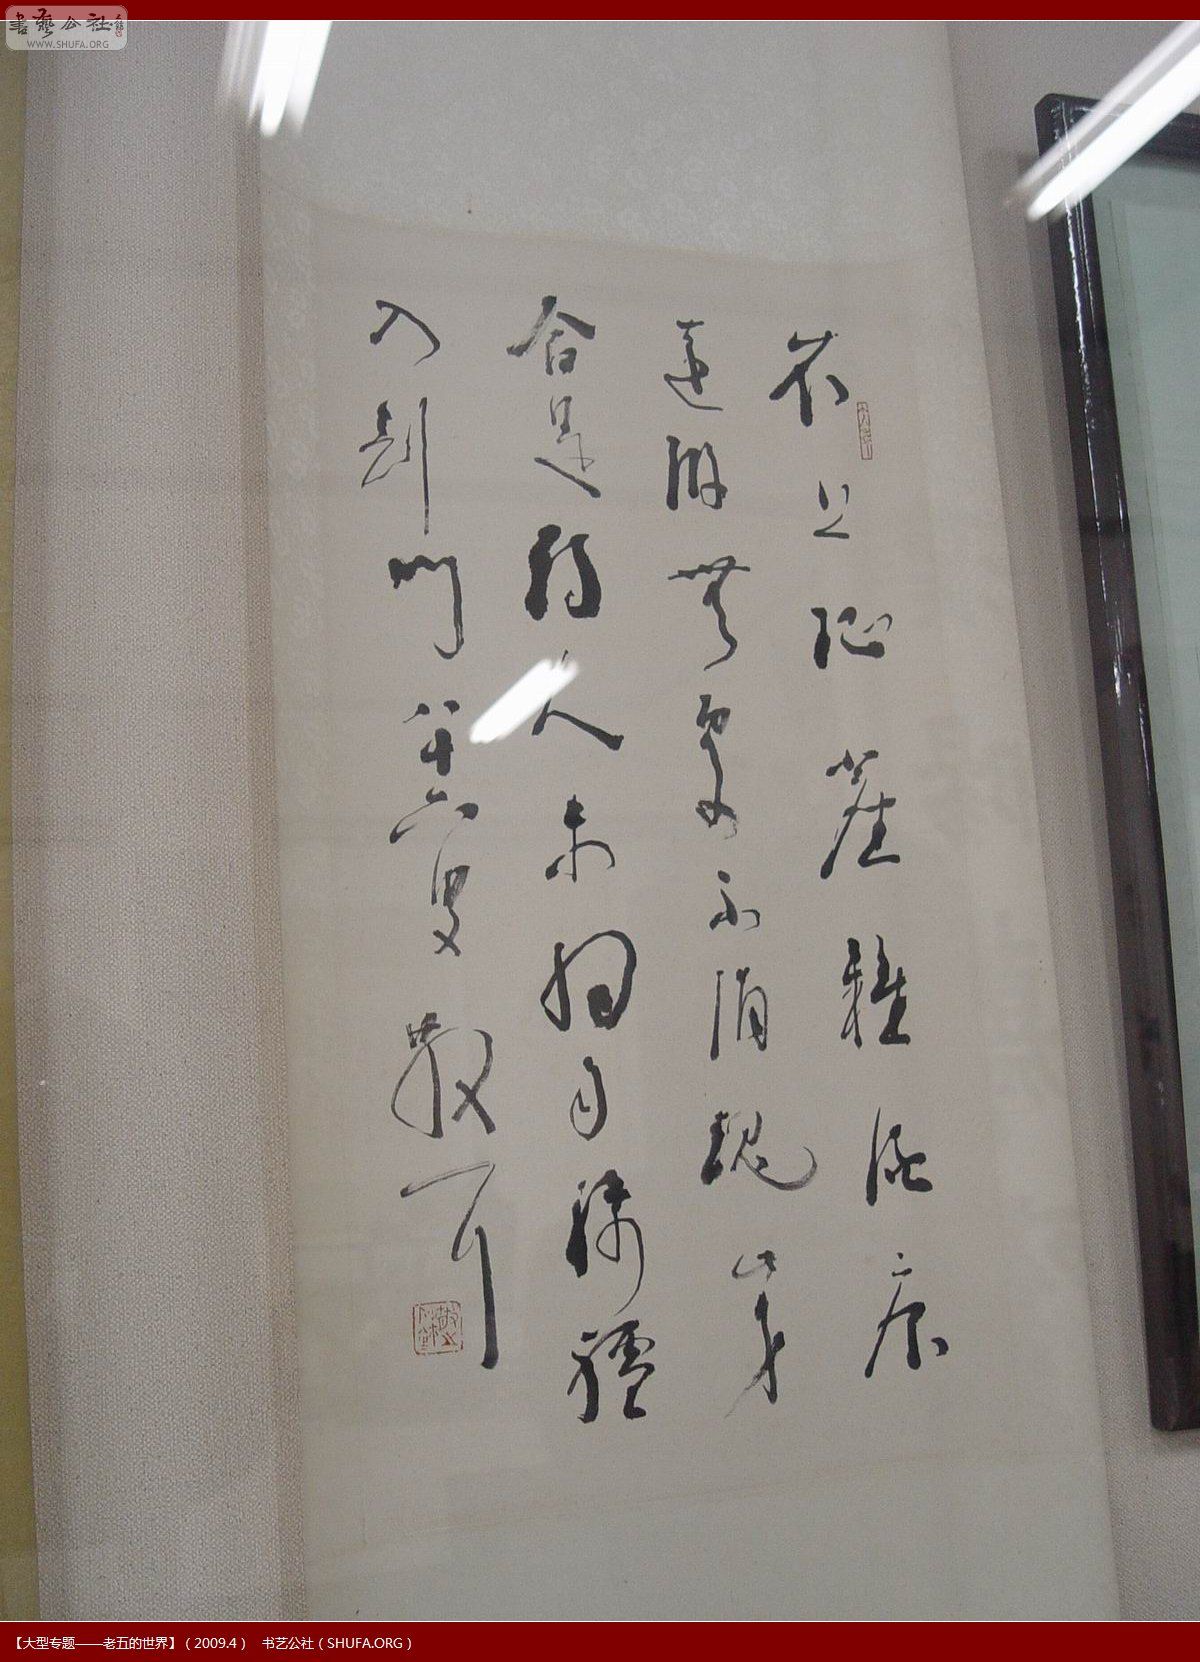 書藝公社
WWW.SHUFA.ORG
衣上征塵雜酒痕
遠游無處不消魂此身
合是詩人未細雨騎驢
入劍門八十六叟散耳
【大型专题——老五的世界】（2009.4） 书艺公社（SHUFA.ORG）